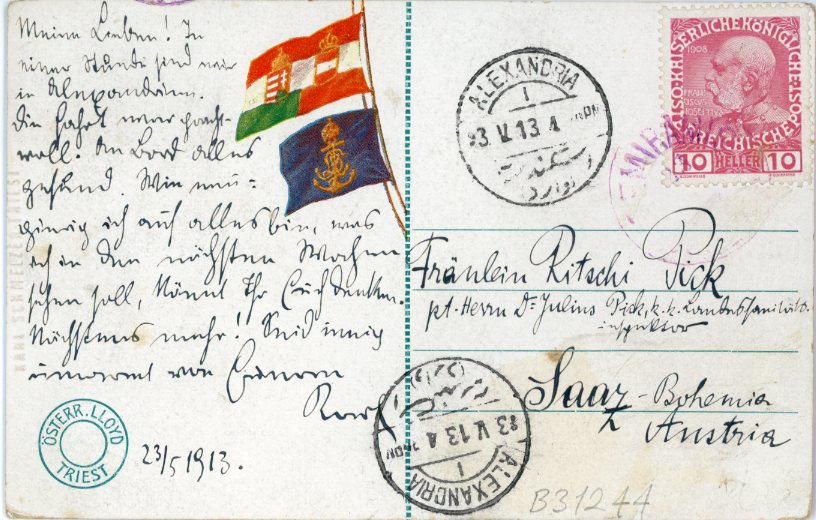 Meine Lieben! In
einer Stunde sind wir
in Alexandrien.
Die Fahrt war pracht-
voll. An Bord alles
gesund. Wie neu-
gierig ich auf alles bin, was
ich in den nächsten Wochen
sehen soll, könnt Ihr Euch denken.
Nächstens mehr! Seid innig
umarmt von Eurem
Karl
23/5 1913.
ÖSTERR. LLOYD
TRIEST
KARL SCHMELZER
ALEXANDRIA
I
23 V 13 4
1908
10 HELLER 10
Fräulein Ritschi Pick
pt. Herrn Dr Julius Pick, k. k. Landessanitäts-
inspektor
Saaz - Bohemia
Austria
ALEXANDRIA
I
23 V 13 4
B31244